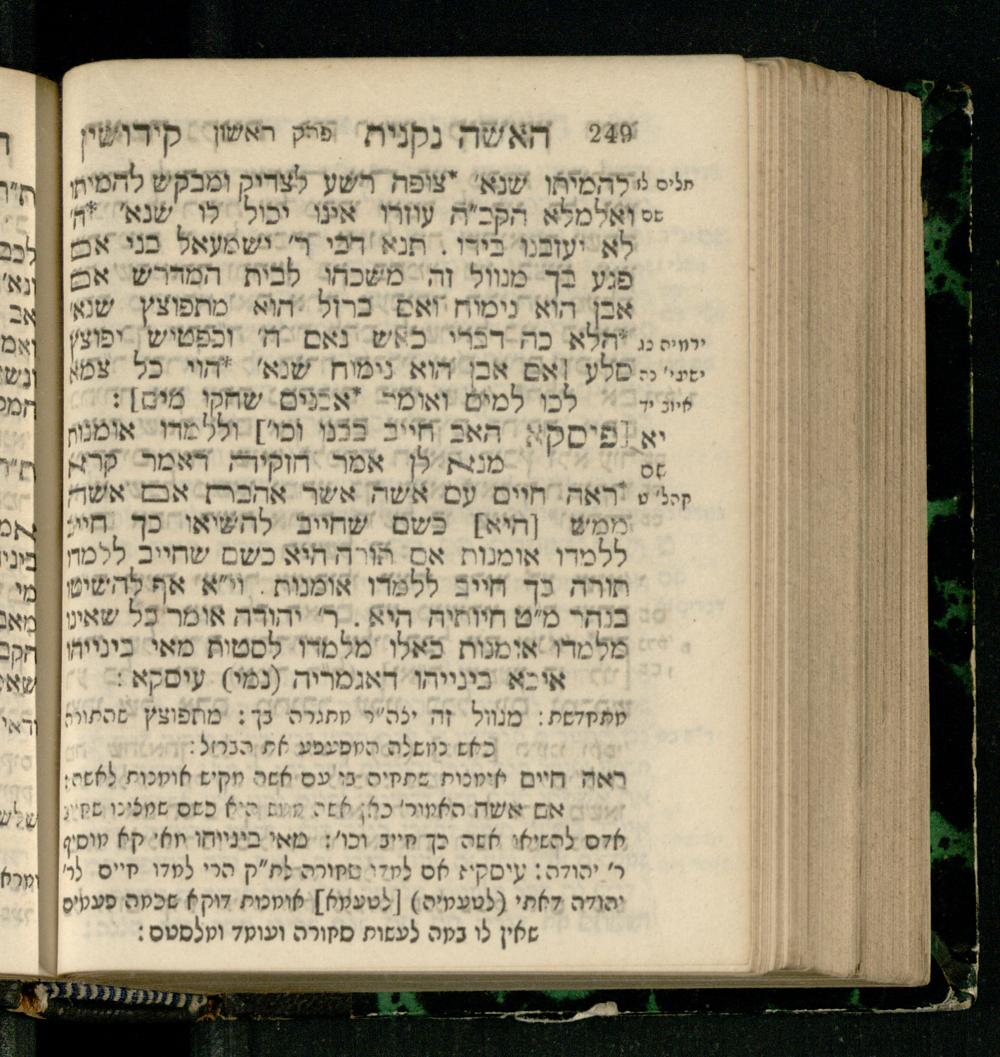 249 האשה נקנית פרק ראשון קידושין
להמיתו שנא' *צופה רשע לצדיק ומבקש להמיתו
תלים לז
ואלמלא הקב"ה עוזרו אינו יכול לו שנא' *ה'
שם
לא יעזבנו בידו. תנא דבי ר' ישמעאל בני אם
פגע בך מנוול זה משכהו לבית המדרש אם
אבן הוא נימוח ואם ברזל הוא מתפוצץ שנא'
*הלא כה דברי כאש נאם ה' וכפטיש יפוצץ
ירמיה כג
סלע [אם אבן הוא נימוח שנא' *הוי כל צמא
ישעי' נה
לכו למים ואומר *אבנים שחקו מים]:
איוב יד
יא [פיסקא האב חייב בבנו וכו'] וללמדו אומנות
מנא לן אמר חזקיה דאמר קרא
שם
*ראה חיים עם אשה אשר אהבת אם אשה
קהל' ט
ממש [היא] כשם שחייב להשיאו כך חייב
ללמדו אומנות אם תורה היא כשם שחייב ללמדו
תורה כך חייב ללמדו אומנות. וי"א אף להשיטו
בנהר מ"ט חיותיה היא. ר' יהודה אומר כל שאינו
מלמדו אומנות כאלו מלמדו לסטות מאי בינייהו
איכא בינייהו דאגמריה (נמי) עיסקא:
מתקדשת: מנוול זה יצה"ר מתגרה בך: מתפוצץ שהתורה
כאש נמשלה המפעפע את הברזל:
ראה חיים אומנות שתחיה בו עם אשה מקיש אומנות לאשה:
אם אשה האמור' כאן אשה ממש היא כשם שמצינו שחייב
אדם להשיאו אשה כך חייב וכו': מאי בינייהו מאי קא מוסיף
ר' יהודה: עיסקא אם למדו סחורה לת"ק הרי למדו חיים לר'
יהודה דאתי (לטעמיה) [לטעמא] אומנות דוקא שכמה פעמים
שאין לו במה לעשות סחורה ועומד ומלסטם: